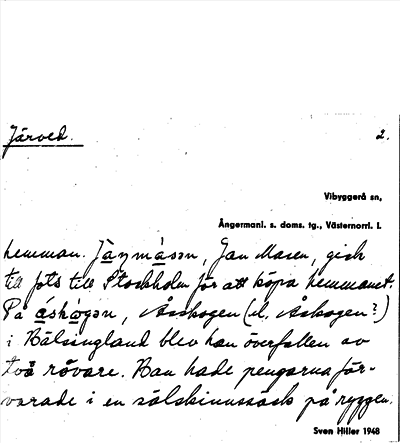 Järved.
2.
Vibyggerå sn,
Ångermanl. s. doms. tg., Västernorrl. l.
hemman. Ja̲nmå̲sən, Jan Masen, gick
till fots till Stockholm för att köpa hemmanet.
På å̲skó̲gən, Åsskogen (el. Åskogen?)
i Hälsingland blev han överfallen av
två rövare. Han hade pengarna för-
varade i en sälskinnssäck på ryggen.
Sven Hiller 1948